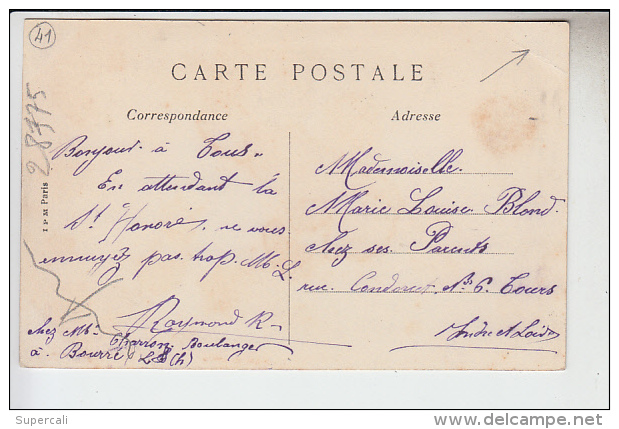 41
28775
CARTE POSTALE
Correspondance
Adresse
I P M Paris
Bonjour à Tous.
En attendant la
St Honoré, ne vous
ennuyez pas trop. M. L.
Raymond R.
chez Mr
Charron Boulanger
à Bourré
Mademoiselle
Marie Louise Blond
chez ses Parents
rue Condorcet No 6. Tours
Indre et Loire
Supercali
www.delcampe.net